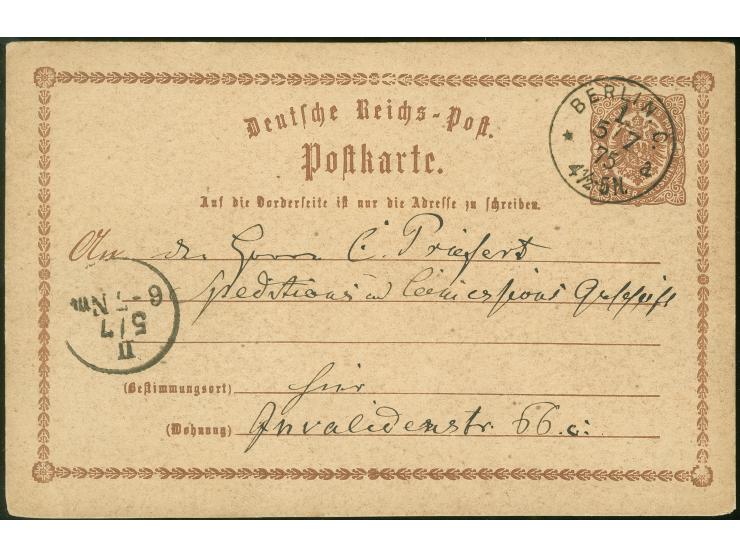 Deutsche Reichs-Post.
Postkarte.
Auf die Vorderseite ist nur die Adresse zu schreiben.
BERLIN. C.
1.
5/7
75
4½-5N. a
An den Herrn C. Priefert
Speditions und Commissions Geschäft
6-7 Nm
5/7
II
(Bestimmungsort) hier
(Wohnung) Invalidenstr. 66.c: